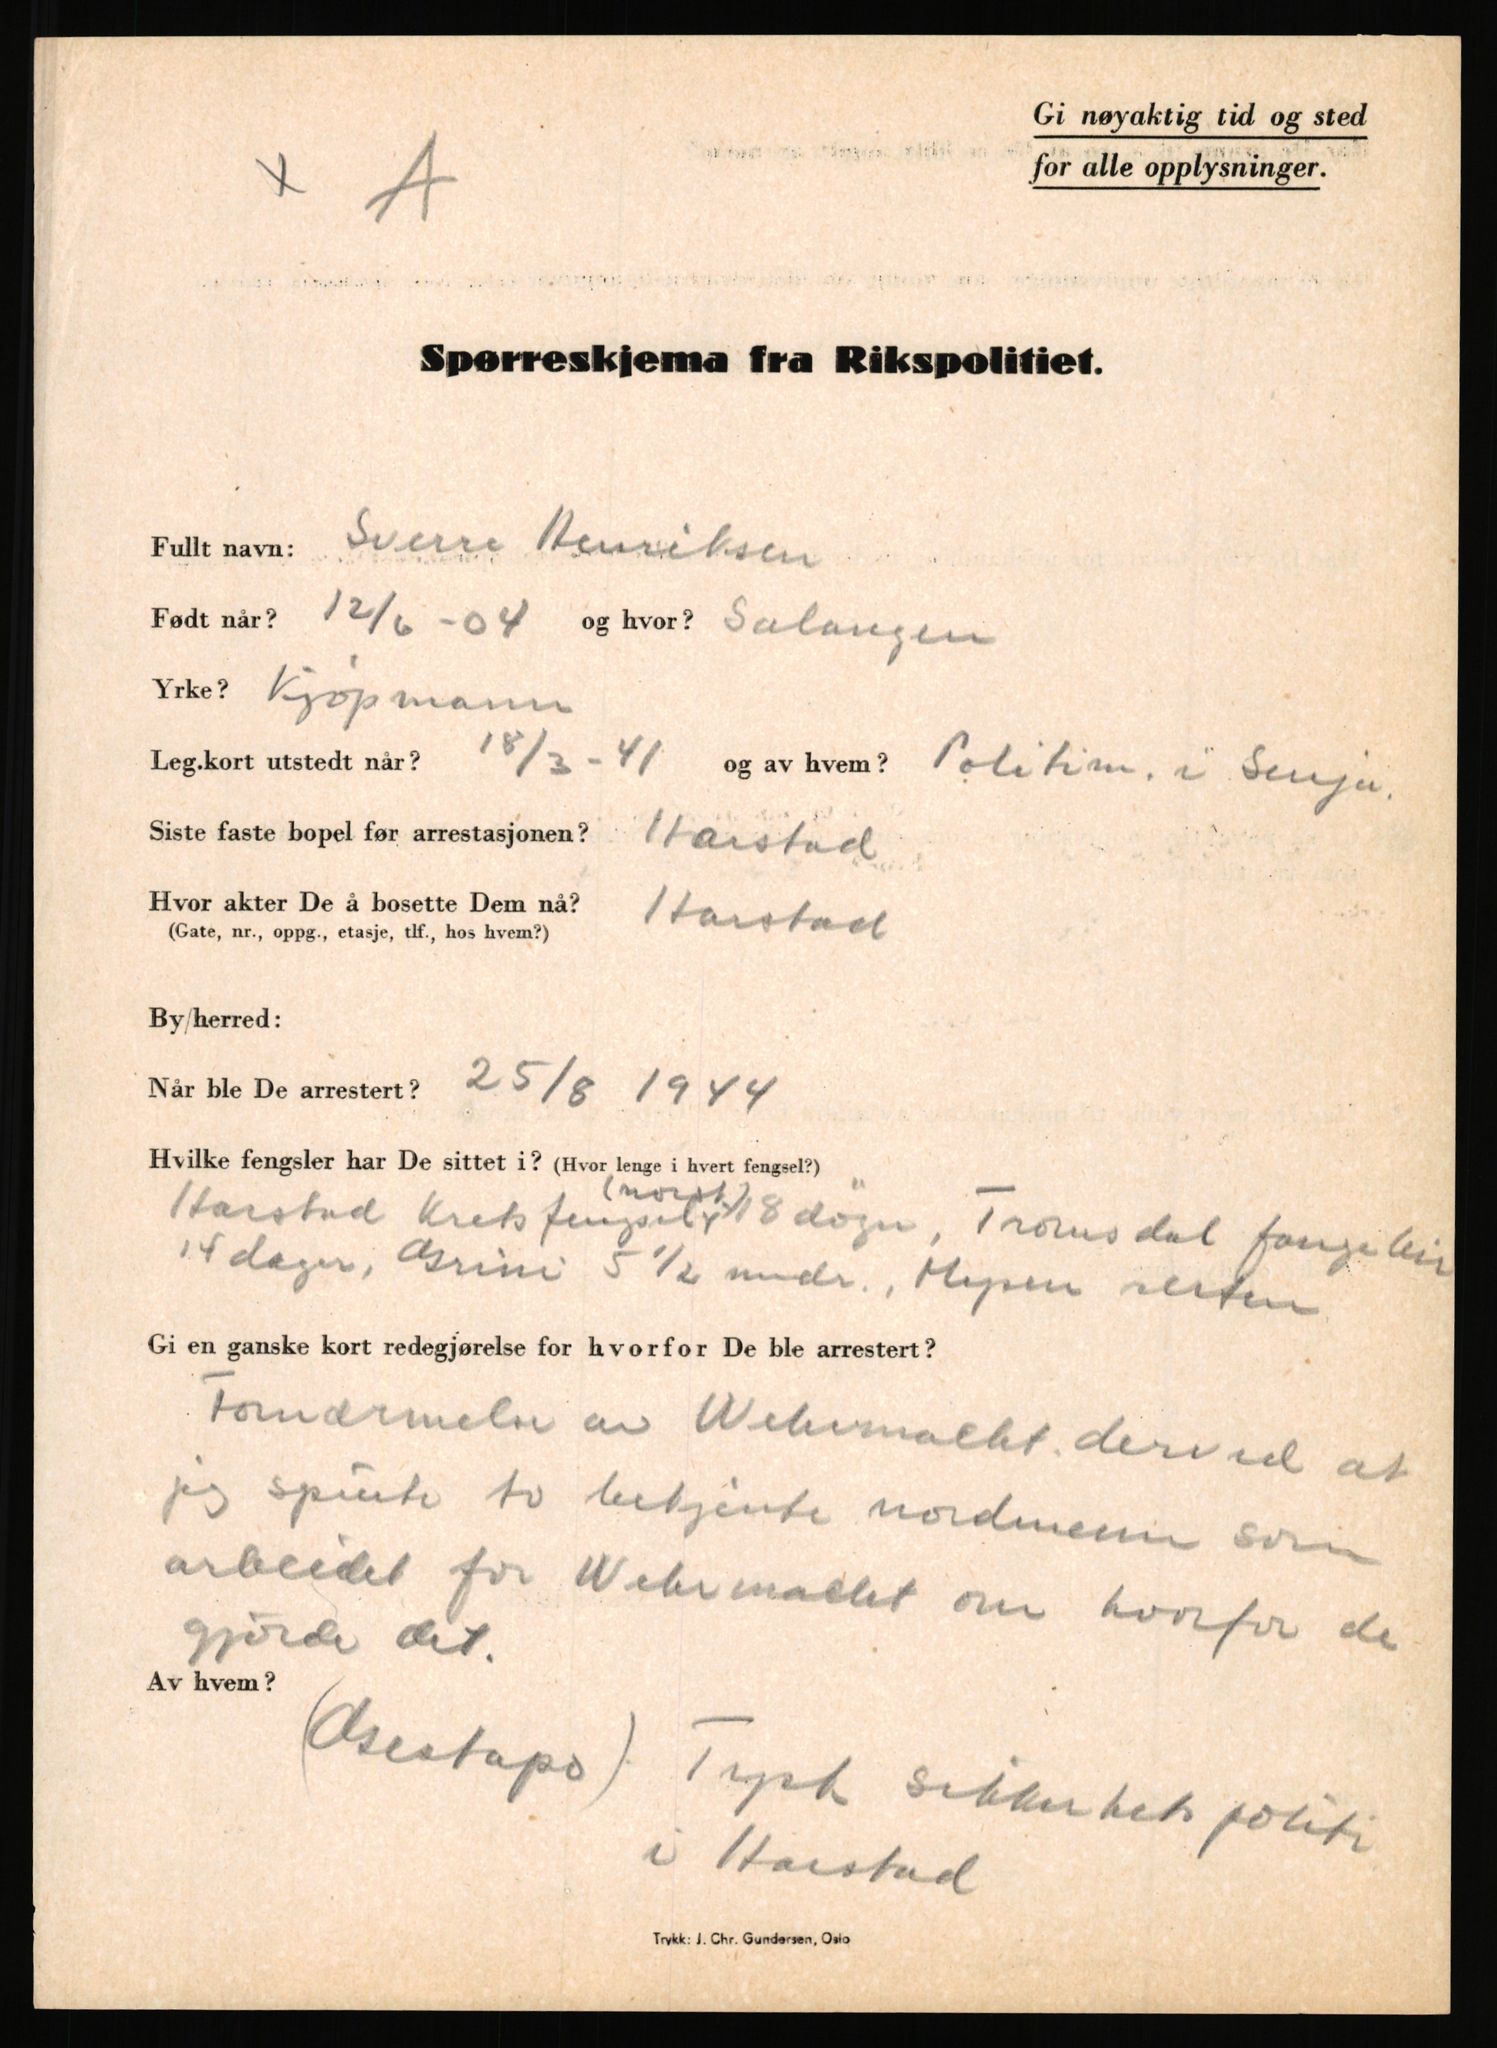 Gi nøyaktig tid og sted
for alle opplysninger.
x A
Spørreskjema fra Rikspolitiet.
Fullt navn: Sverre Henriksen
Født når? 12/6 -04 og hvor? Salangen
Yrke? Kjøpmann
Leg.kort utstedt når? 18/3 - 41 og av hvem? Politim. i Senja.
Siste faste bopel før arrestasjonen? Harstad
Hvor akter De å bosette Dem nå? Harstad
(Gate, nr., oppg., etasje, tlf., hos hvem?)
By/herred:
Når ble De arrestert? 25/8 1944
Hvilke fengsler har De sittet i? (Hvor lenge i hvert fengsel?)
(norsk)
Harstad Krets fengsel 18 døgn, Tromsdal fangeleir
14 dager, Grini 5 1/2 mndr., Mysen resten
Gi en ganske kort redegjørelse for hvorfor De ble arrestert?
Fornærmelse av Wehrmacht. derved at
jeg spurte to bekjente nordmenn som
arbeidet for Wehrmacht om hvorfor de
gjørde det.
Av hvem?
(Gestapo) Tysk sikkerhets politi
i Harstad
Trykk: J. Chr. Gundersen, Oslo